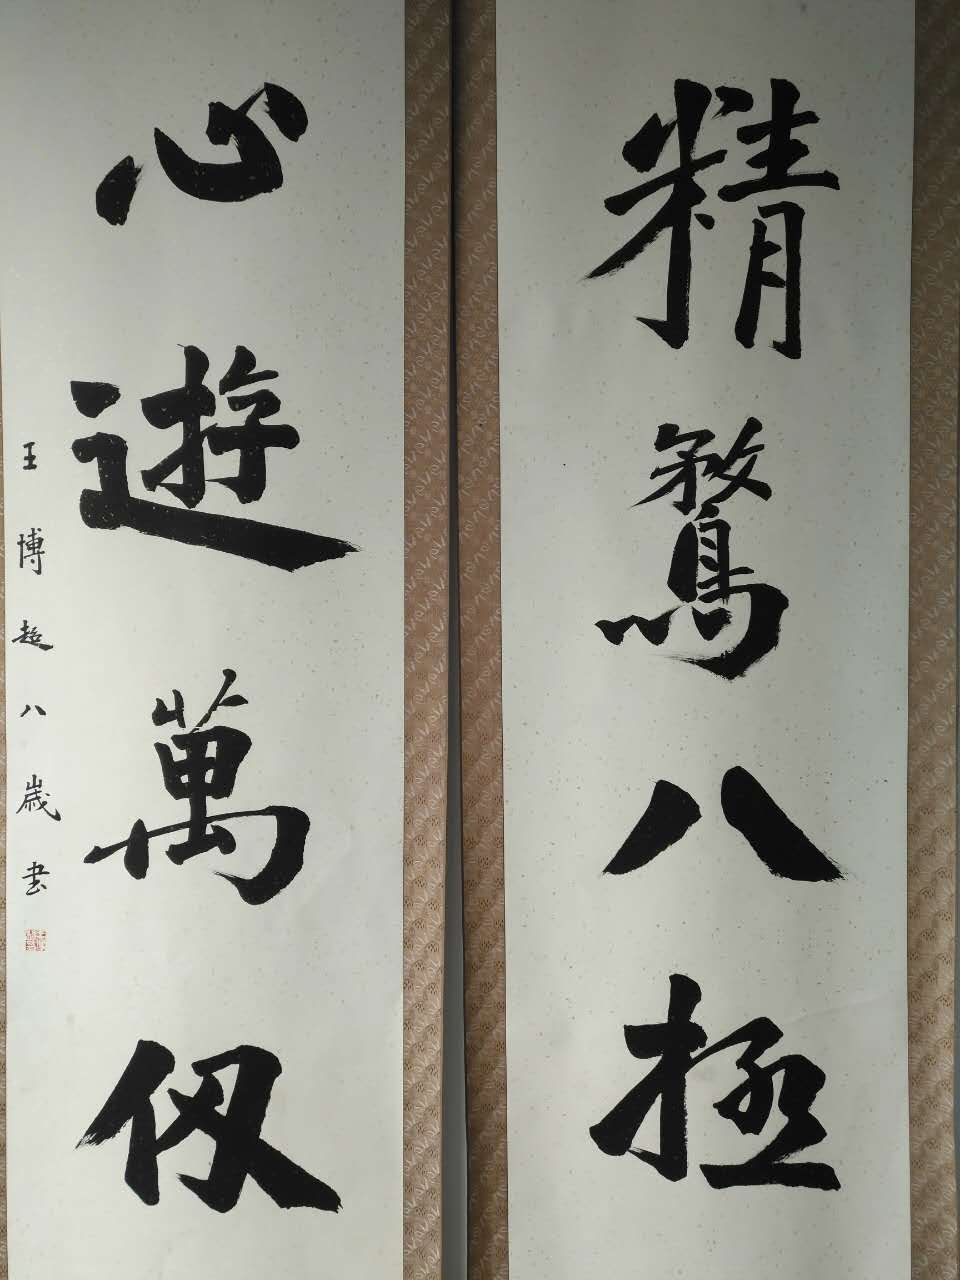 精騖八極
心遊萬仭
王博超八歲书